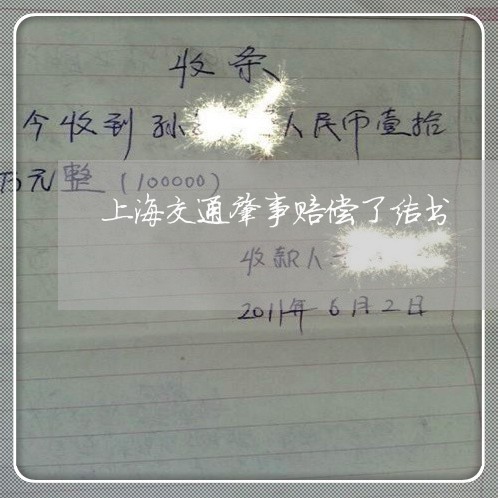 收条
今收到孙 人民币壹拾
万元整(100000)
上海交通肇事赔偿了结书
收款人
2011年6月2日